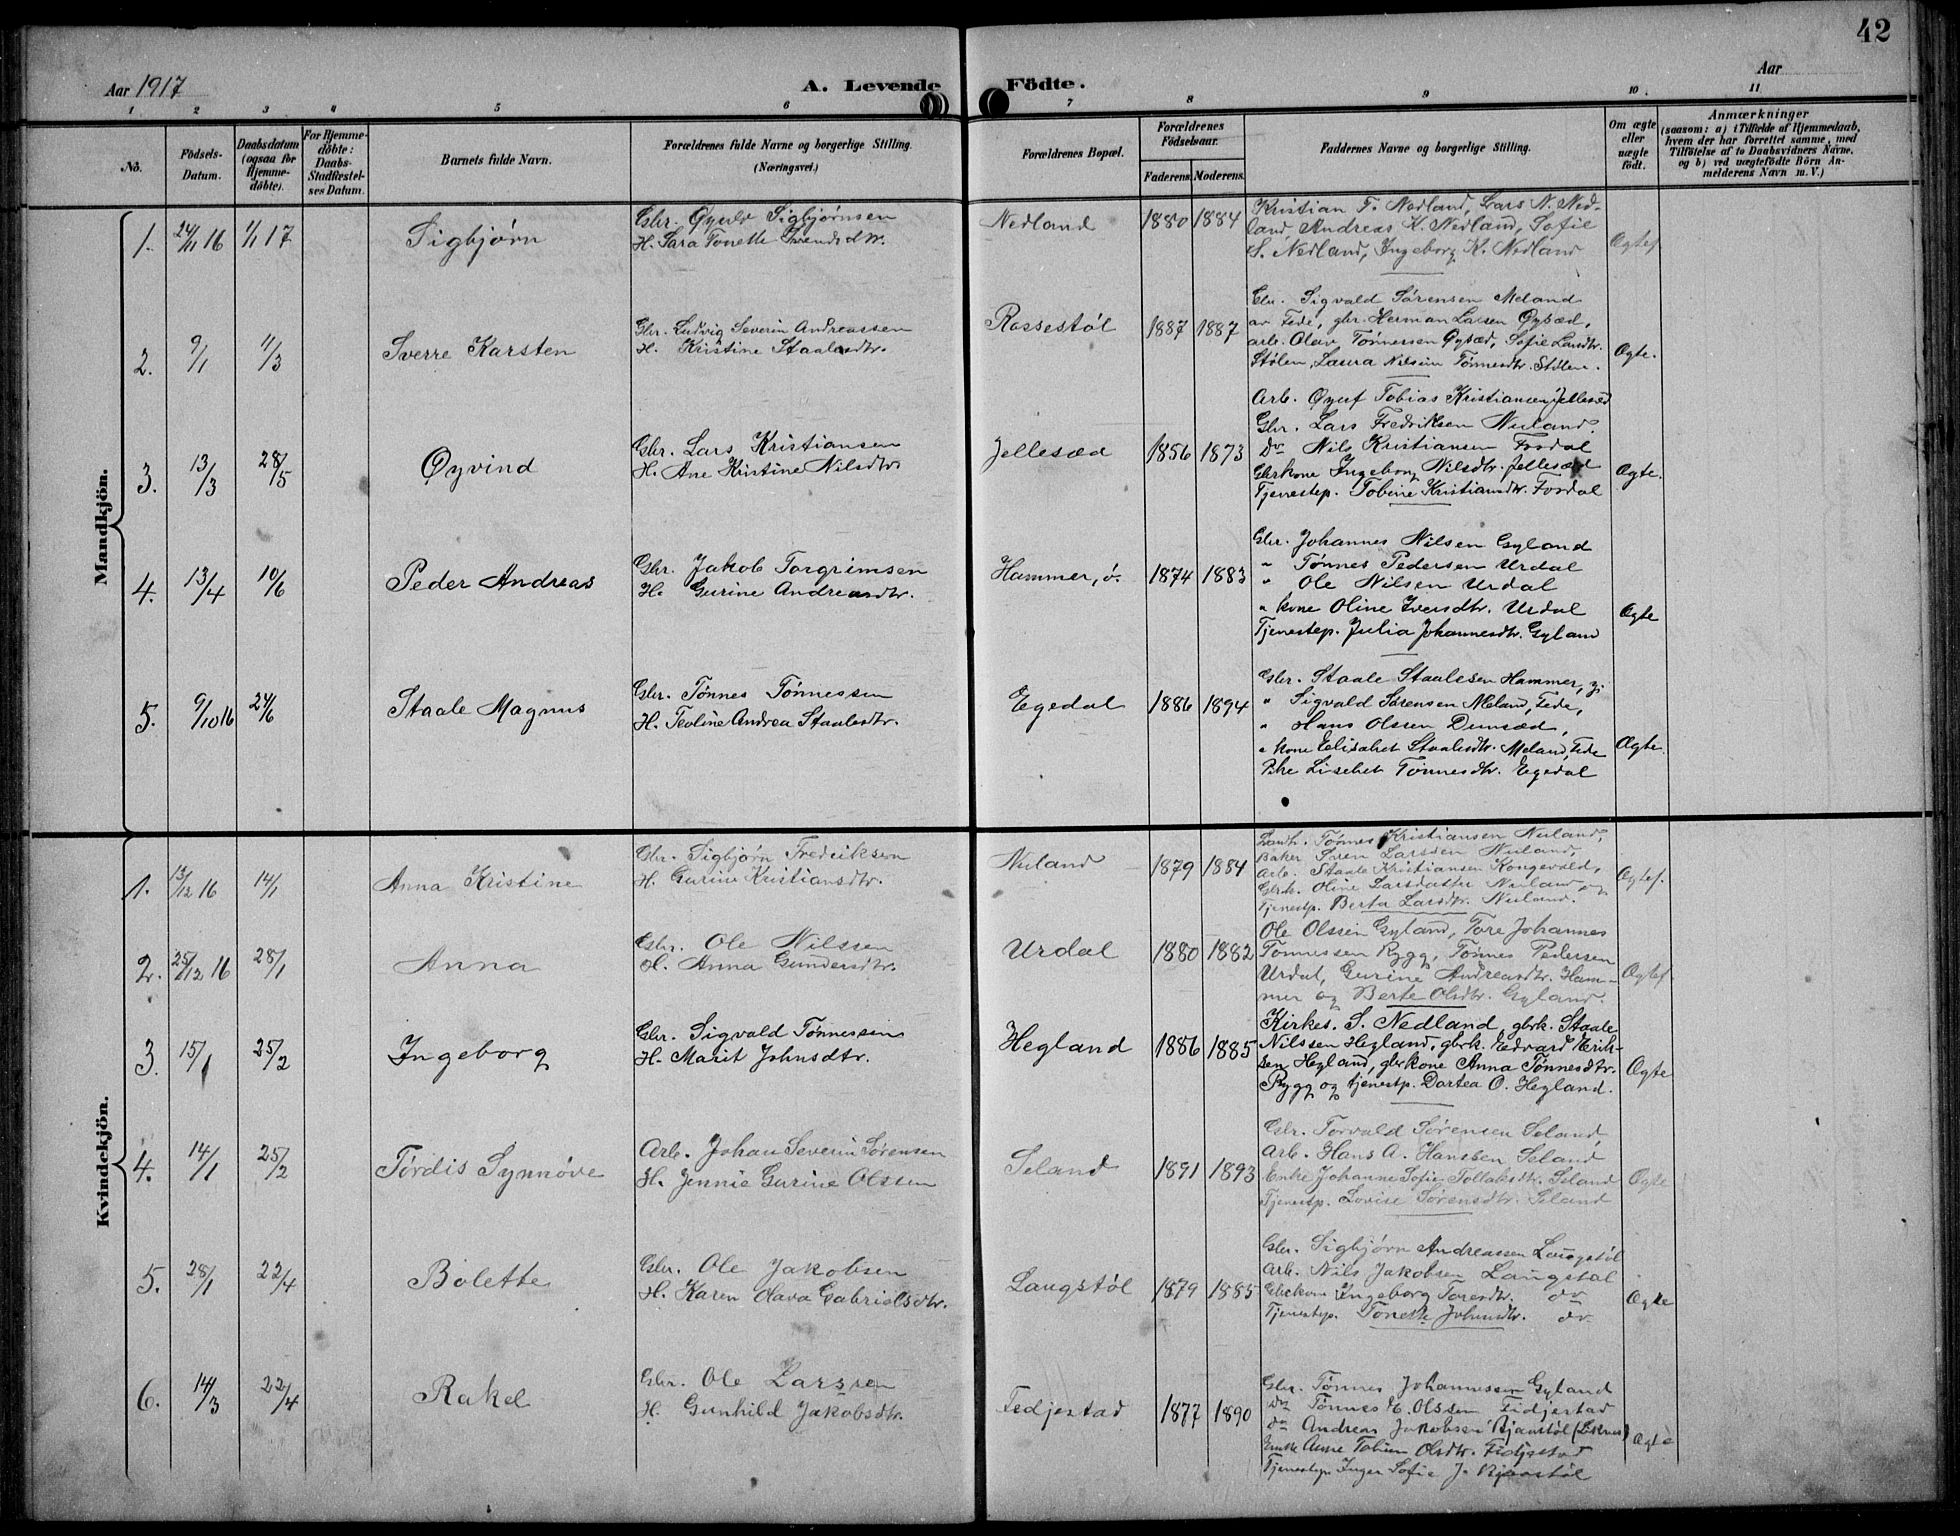 42
Aar 1917
A. Levende Födte.
Aar
1 2 3 4 5 6 7 8 9 10 11
No.
Födsels-
Datum.
Daabsdatum
(ogsaa for
Hjemme-
döbte).
For Hjemme-
döbte:
Daabs-
Stadfæstel-
ses Datum.
Barnets fulde Navn.
Forældrenes fulde Navne og borgerlige Stilling.
(Næringsvei.)
Forældrenes Bopæl.
Forældrenes
Födselsaar.
Faderens. Moderens.
Faddernes Navne og borgerlige Stilling.
Om ægte
eller
uægte
födt.
Anmærkninger
(saasom: a) i Tilfælde af Hjemmedaab,
hvem der har forrettet samme, med
Tilföielse af to Daabsvidners Navne,
og b) ved uægtefödte Börn An-
melderens Navn m. V.)
Mandkjön.
1. 24/11 16 1/1 17 Sigbjørn
Gbr. Øyulv Sigbjørnsen
H. Sara Tonette Svendsdtr.
Nedland 1880 1884
Kristian F. Nedland, Lars N. Ned-
land, Andreas K. Nedland, Sofie
S. Nedland, Ingeborg K. Nedland
Ægtef
2. 9/1 11/3 Sverre Karsten
Gbr. Ludvig Severin Andreassen
H. Kristine Staalesdtr.
Rossestøl 1887 1887
Gbr. Sigvald Sørensen Meland
av Fede, gbr. Herman Larsen Øysæd,
arb. Olav Tønnessen Øysæd, Sofie Larsdtr.
Stølen, Laura Nilsine Tønnesdtr. Stölen.
Ægte.
3. 13/3 28/5 Øyvind
Gbr. Lars Kristiansen
H. Ane Kristine Nilsdtr
Jellesæd 1856 1873
Arb. Øyuf Tobias Kristiansen Jellesæd
Gbr. Lars Fredriksen Nuland.
Do Nils Kristiansen Fosdal
Gbrkone Ingeborg Nilsdtr. Jellesæd
Tjenestep. Tobine Kristiansdtr. Fosdal
Ægte.
4. 13/4 10/6 Peder Andreas
Gbr. Jakob Torgrimsen
H. Gurine Andreasdtr.
Hammer, ö. 1874 1883
Gbr. Johannes Nilsen Gyland
" Tønnes Pedersen Urdal
" Ole Nilsen Urdal
" kone Oline Iversdtr. Urdal
Tjenestep. Julia Johannesdtr. Gyland
Ægte
5. 9/10 16 24/6 Staale Magnus
Gbr. Tønnes Tønnessen
H. Teoline Andrea Staalesdtr.
Egedal 1886 1894
Gbr. Staale Staalesen Hammer, y.
" Sigvald Sørensen Meland, Fede,
" Hans Olssen Dunsæd,
" kone Elisabet Staalesdtr. Meland, Fede
Pike Lisebet Tønnesdtr. Egedal
Ægte.
Kvindekjön.
1. 13/12 16 14/1 Anna Kristine
Gbr. Sigbjørn Fredriksen
H. Gurine Kristiansdtr.
Nuland 1879 1884
Landh. Tønnes Kristiansen Nuland,
Baker Søren Larssen Nuland,
Arb. Staale Kristiansen Kongevold,
Gbrk. Oline Larsdatter Nuland, og
Tjenestp. Berta Larsdtr. Nuland.
Ægtef.
2. 25/12 16 28/1 Anna
Gbr. Ole Nilssen
H. Anna Gundersdtr.
Urdal 1880 1882
Ole Olssen Gyland, Tore Johannes
Tønnessen Rygg, Tønnes Pedersen
Urdal, Gurine Andreasdtr. Ham-
mer og Berte Olsdtr. Gyland.
Ægtef
3. 15/1 25/2 Ingeborg
Gbr. Sigvald Tønnessen
H. Marit Johnsdtr.
Hegland 1886 1885
Kirkes. S. Nedland, gbrk. Staale
Nilssen Hegland, gbrk. Edvard Erik-
sen Hegland, gbrkone Anna Tønnesdtr.
Rygg og tjenestp. Dortea O. Hegland.
Ægte
4. 14/1 25/2 Tørdis Synnöve
Arb. Johan Severin Sørensen
H. Jennie Gurine Olssen
Seland 1891 1893
Gbr. Torvald Sørensen Seland,
Arb. Hans A. Hanssen Seland
Enke Johanne Sofie Tollaksdtr. Seland
Tjenestp. Lovise Sørensdtr. Seland
Ægte
5. 28/1 22/4 Bolette
Gbr. Ole Jakobsen
H. Karen Olava Gabrielsdtr.
Langstøl 1879 1885
Gbr. Sigbjørn Andreassen Langstøl
Arb. Nils Jakobsen Langstøl
Gbrkone Ingeborg Toresdtr. do
Tjenestep. Tonette Johnsdtr. do
Ægte
6. 14/3 22/4 Rakel
Gbr. Ole Larssen
H. Gunhild Jakobsdtr.
Fedjestad 1877 1890
Gbr. Tønnes Johannessen Gyland
Do Tønnes E. Olssen Fidjestad
do Andreas Jakobsen Bjønstøl
Enke Anne Tobine Olsdtr. Fidjestad
Tjenestep. Inger Sofie J. Bjønstøl
Ægte